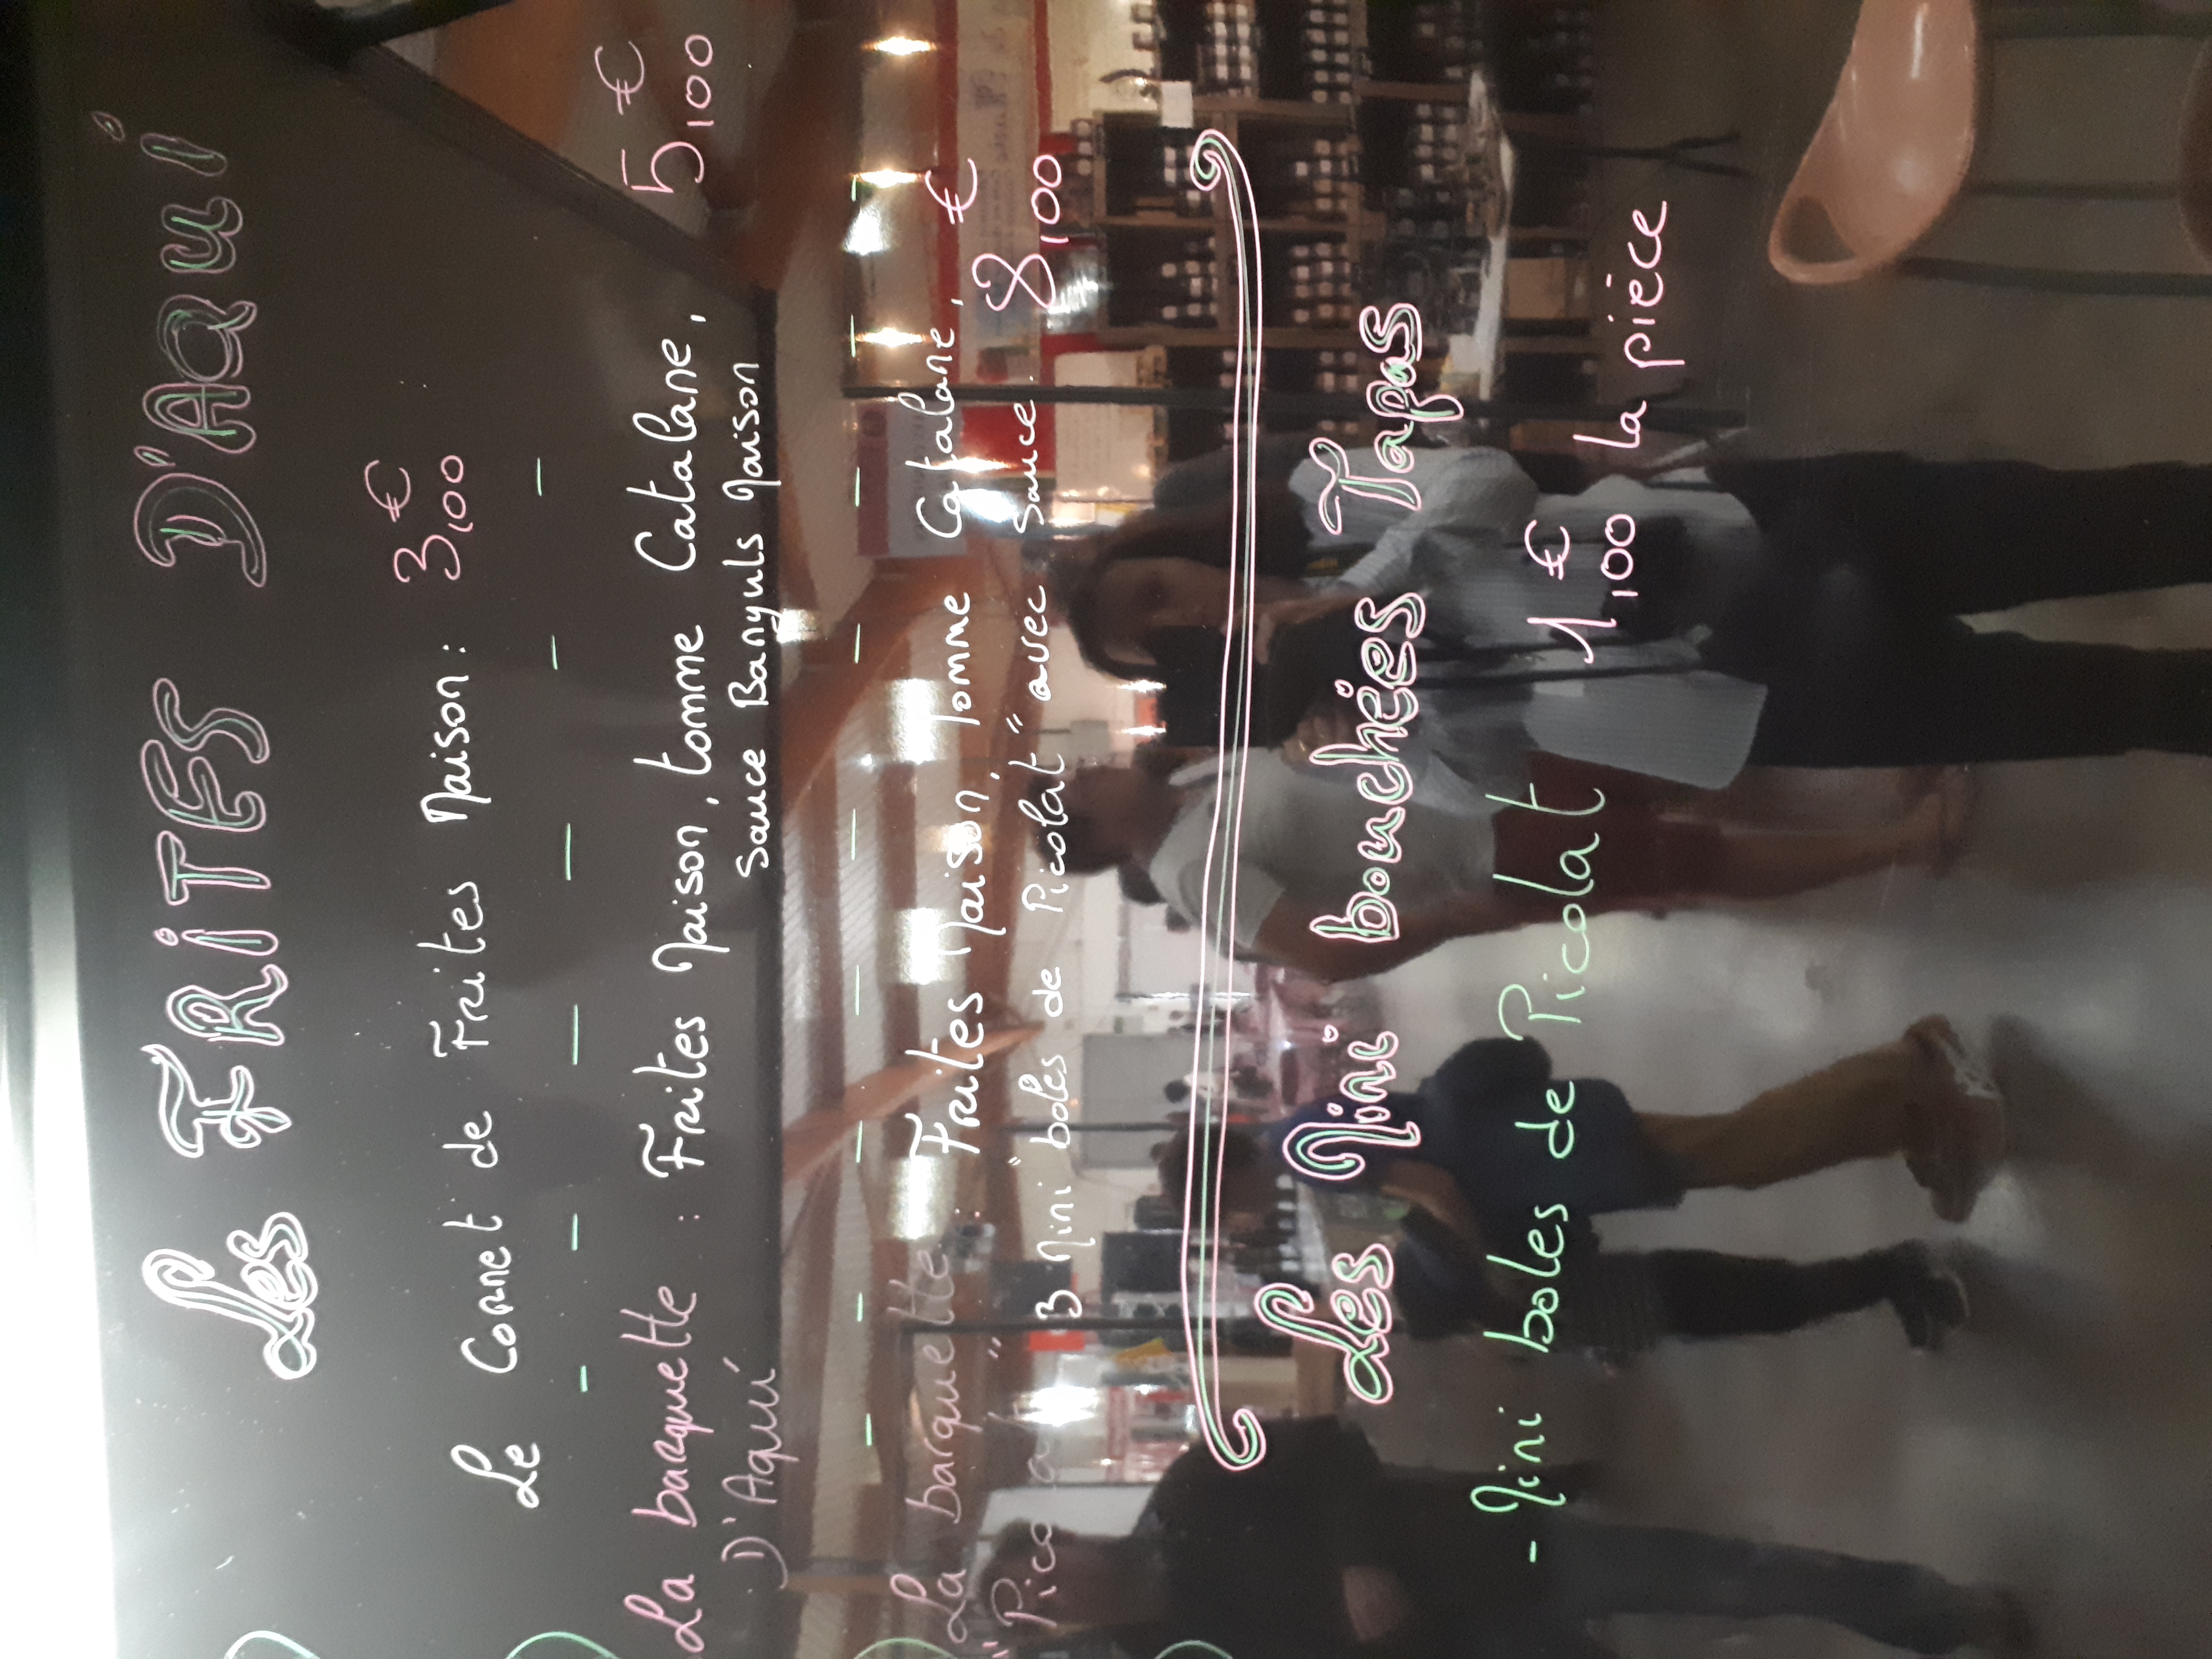 Les FRiTES D'AQui
Le Cornet de Frites Maison: 3,00 €
La barquette : Frites Maison, tomme Catalane, 5,00 €
D'Aqui Sauce Banyuls Maison
La barquette : Frites Maison, Tomme Catalane, 8,00 €
"Picolat" 3 Mini "boles de Picolat" avec sauce.
Les Mini bouchées Tapas
- Mini boles de Picolat 1,00 € la pièce